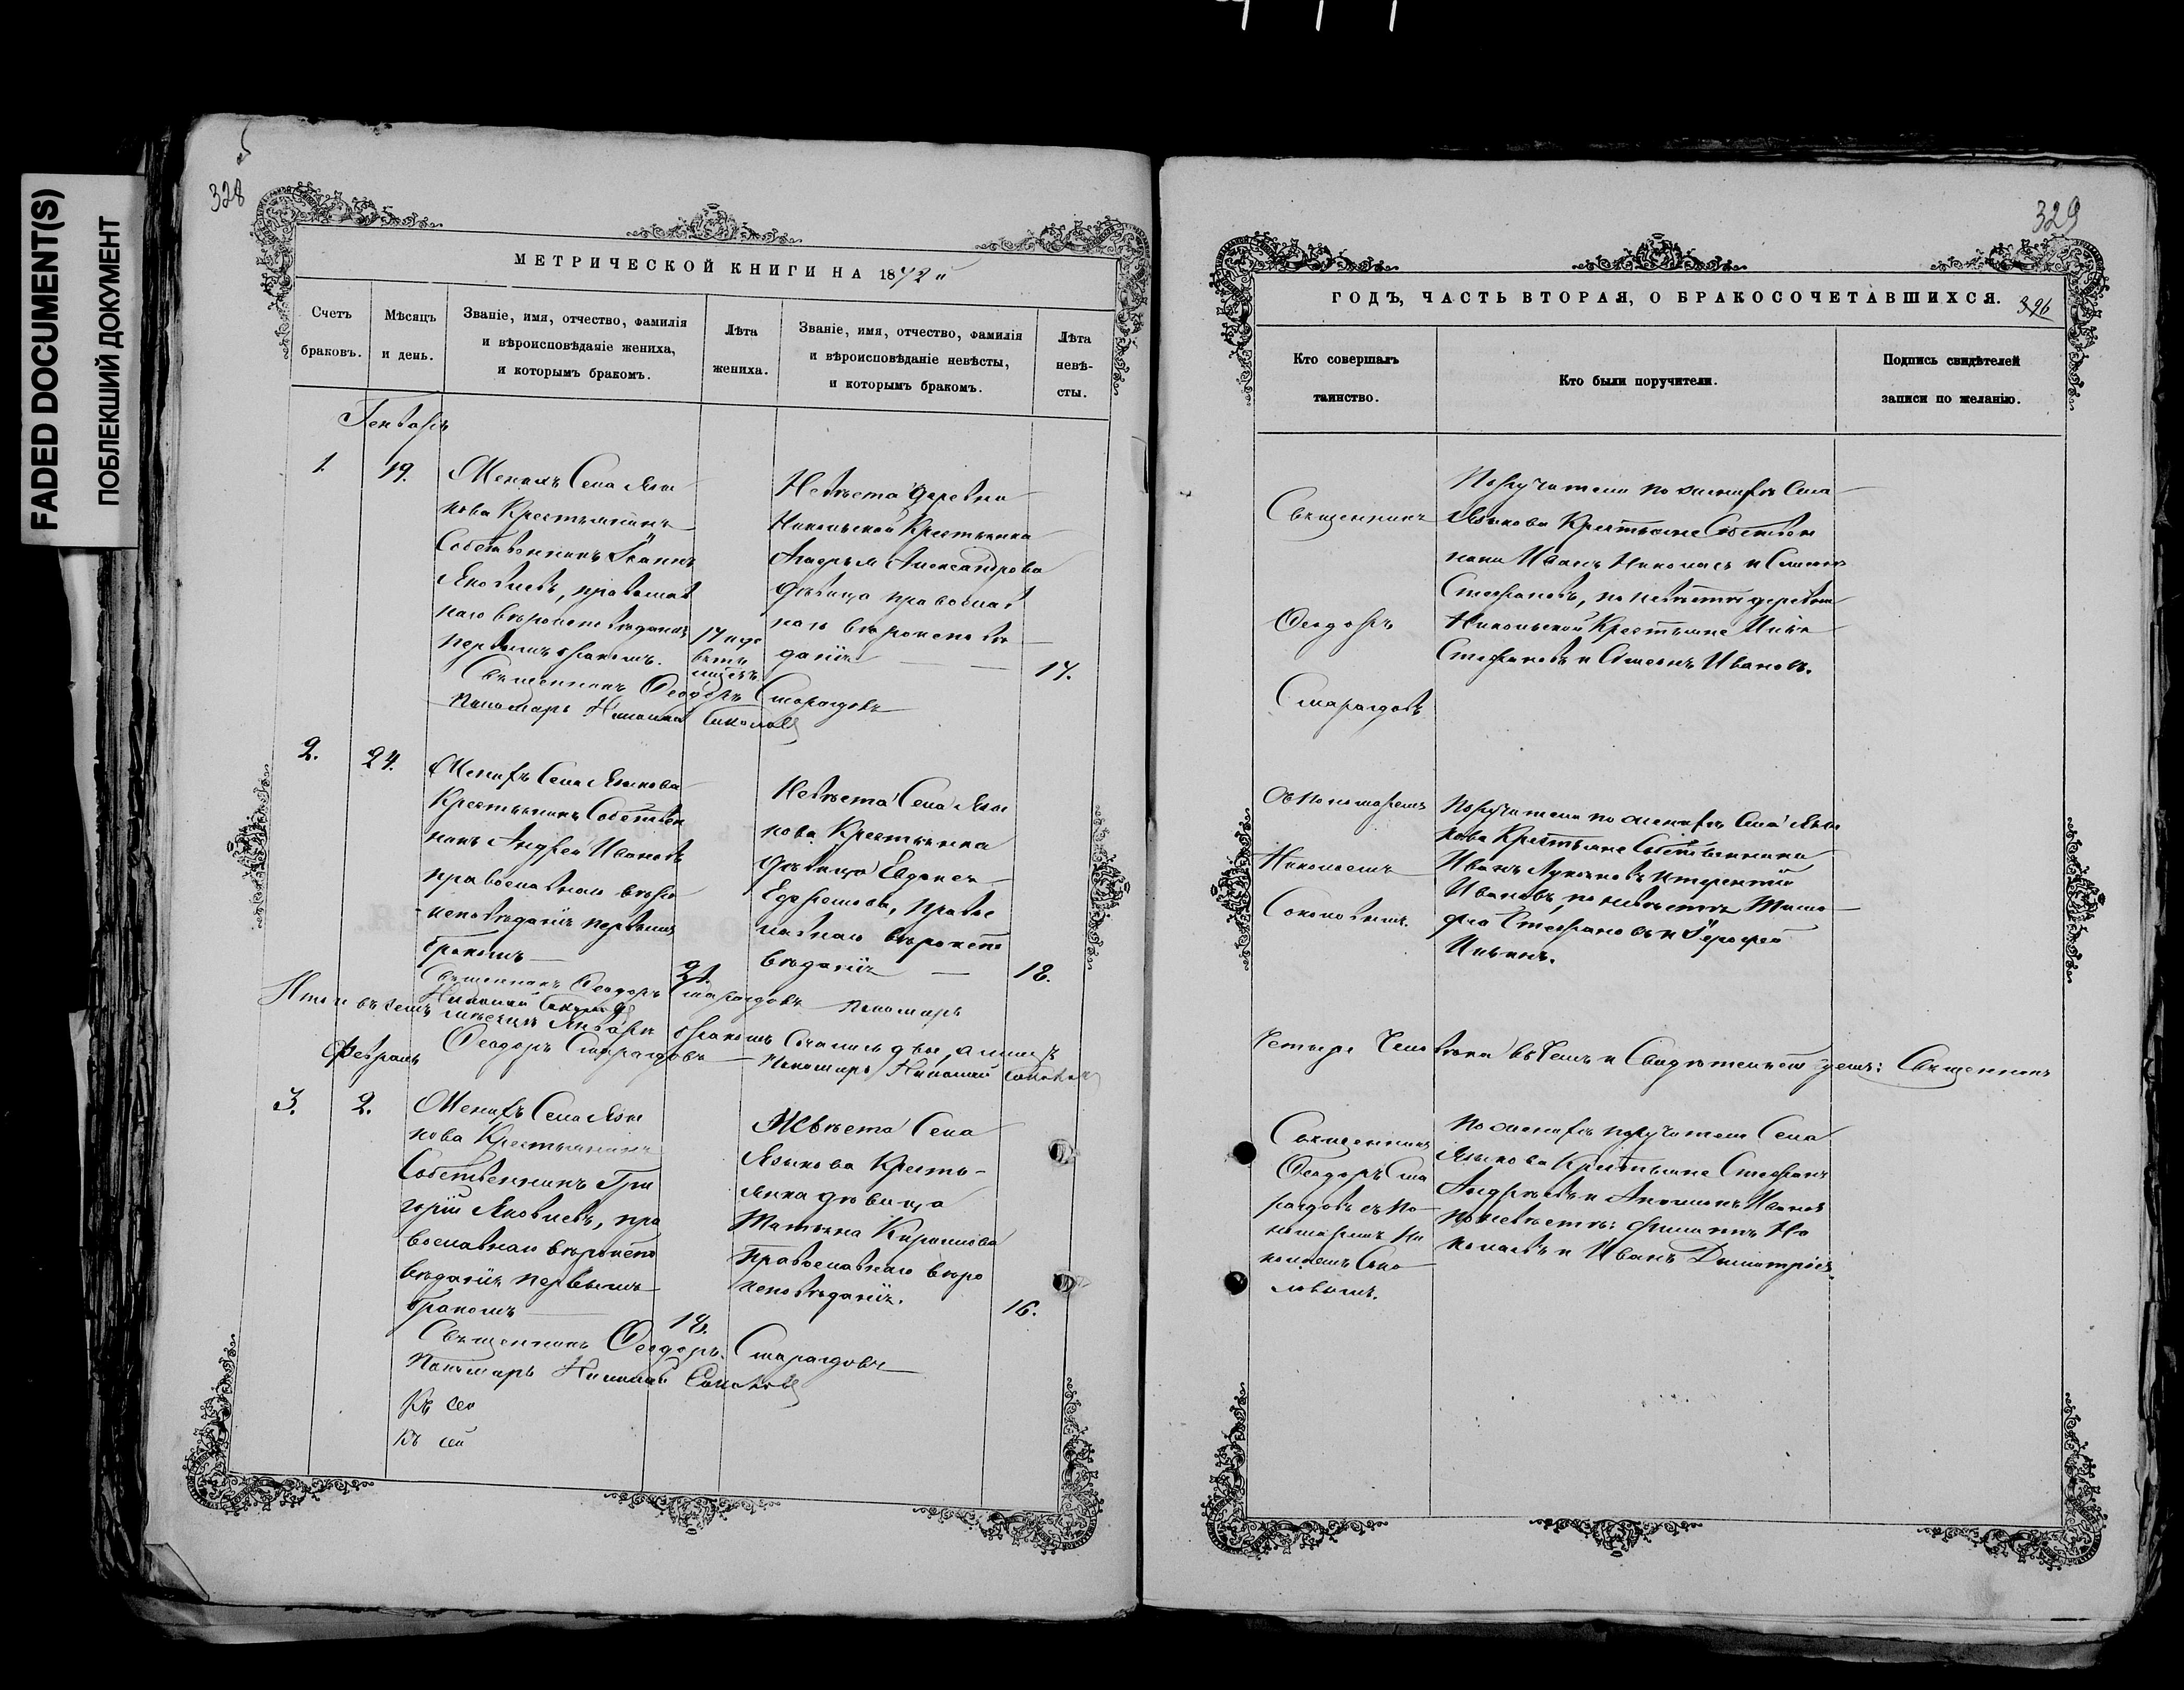 FADED DOCUMENT(S)
ПОБЛЕКШИЙ ДОКУМЕНТ
328
МЕТРИЧЕСКОЙ КНИГИ НА 1872й
Счетъ браковъ.
Мѣсяцъ и день.
Званіе, имя, отчество, фамилія
и вѣроисповѣданіе жениха,
и которымъ бракомъ.
Лѣта жениха.
Званіе, имя, отчество, фамилія
и вѣроисповѣданіе невѣсты,
и которымъ бракомъ.
Лѣта невѣ-
сты.
Генварь
1. 19.
Женихъ Села Язы
кова Крестьянинъ
Собственникъ Іоаннъ
Яковлевъ, православ
наго вѣроисповѣданія
первымъ бракомъ.
17
Невѣста деревни
Никольской Крестьянка
Александрова
дѣвица православ
наго вѣроисповѣ
данія
17.
Священникъ Ѳеодоръ Смарагдовъ
Пономарь Николай Соколовъ
2. 24.
Женихъ Села Языкова
Крестьянинъ Собствен
никъ Андрей Ивановъ
православнаго вѣро
исповѣданія первымъ
бракомъ
21.
Невѣста Села Язы
кова Крестьянка
дѣвица Евдокея
Ефремова, право
славнаго вѣроиспо
вѣданія
18.
Священникъ Ѳеодоръ Смарагдовъ Пономарь
Николай Соколовъ
Итого въ семъ мѣсяцѣ Январѣ бракомъ сочлись двое, а лицъ
Ѳеодоръ Смарагдовъ Пономарь Николай Соколовъ
Февраль
3. 2.
Женихъ Села Язы
кова Крестьянинъ
Собственникъ Гри
горій Яковлевъ, пра
вославнаго вѣроиспо
вѣданія первымъ
бракомъ
18.
Невѣста Села
Языкова Кресть-
янка дѣвица
Татьяна Кирилова
Православнаго вѣро
исповѣданія.
16.
Священникъ Ѳеодоръ Смарагдовъ
Пономарь Николай Соколовъ
Къ сей
Къ сей
329
ГОДЪ, ЧАСТЬ ВТОРАЯ, О БРАКОСОЧЕТАВШИХСЯ.
396
Кто совершалъ
таинство.
Кто были поручители.
Подпись свидѣтелей
записи по желанію.
Священникъ
Ѳеодоръ
Смарагдовъ
Поручители по женихѣ Села
Языкова Крестьяне Собствен
ники Иванъ Николаевъ и
Стефановъ, по невѣстѣ деревни
Никольской Крестьяне Илья
Стефановъ и Симеонъ Ивановъ.
Съ Пономаремъ
Николаемъ
Соколовымъ.
Поручители по женихѣ Села Язы
кова Крестьяне Собственники
Иванъ Лукьяновъ и Терентій
Ивановъ, по невѣстѣ Тимо
фей Стефановъ и Ерофей
Ильинъ.
Четыре Человѣка въ чемъ и Свидѣтельствуемъ: Священникъ
Священникъ
Ѳеодоръ Сма
рагдовъ съ По
номаремъ Ни
колаемъ Соко
ловымъ.
По женихѣ поручители Села
Языкова Крестьяне Стефанъ
Андреевъ и Ивановъ
по невѣстѣ: Филиппъ Ни
колаевъ и Иванъ Димитріевъ.